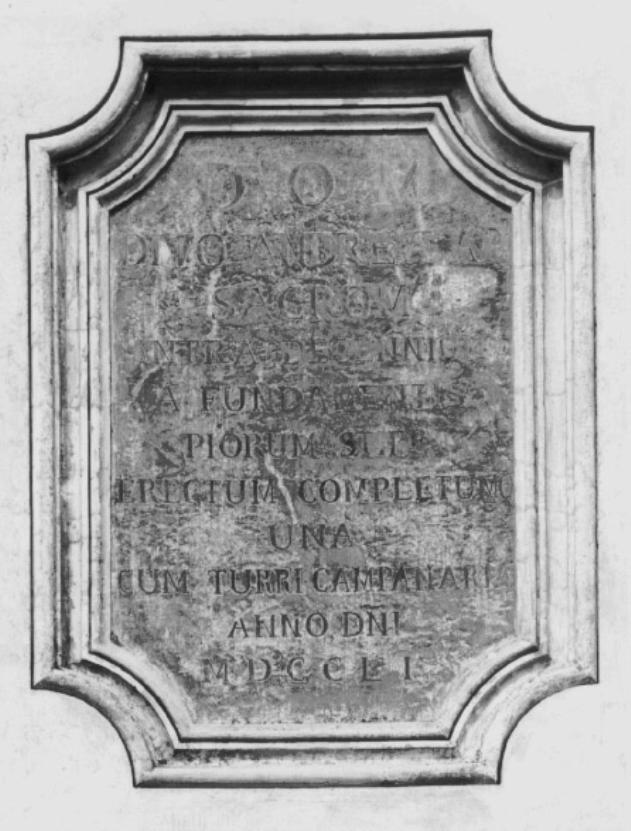 D O M
DIVO ANDREÆ AP
SACRUM
INTRA DECENNIUM
A FUNDAMENTIS
PIORUM
ERECTUM COMPLETUMQ
UNA
CUM TURRI CAMPANARIA
ANNO DÑI
MDCCLI